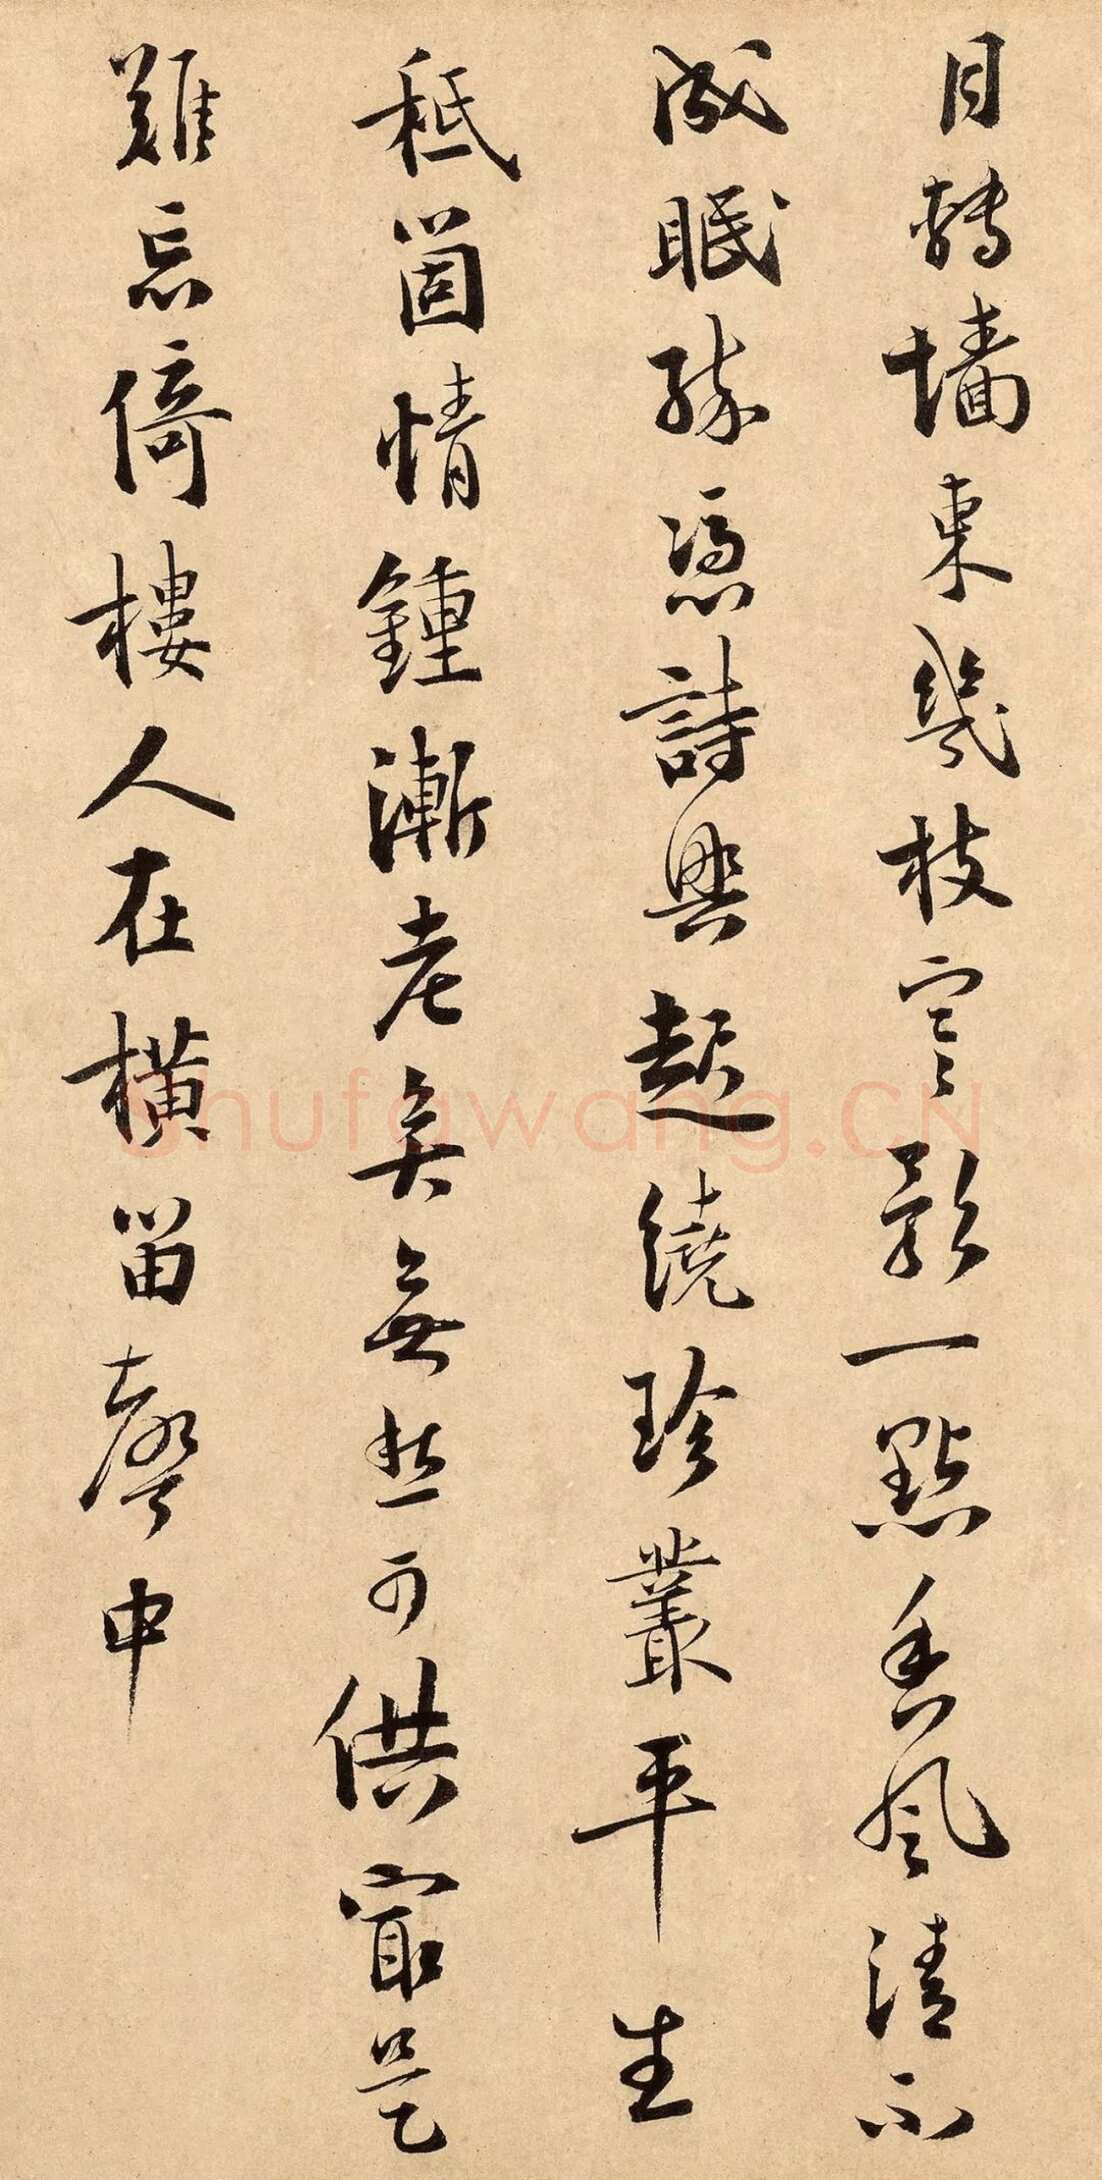 月轉墻東幾枝寒影一點香風清不
成眠醉憑詩興起繞珍叢平生
秪箇情鍾漸老矣無愁可供冣是
難忘倚樓人在橫笛聲中
shufawang.CN